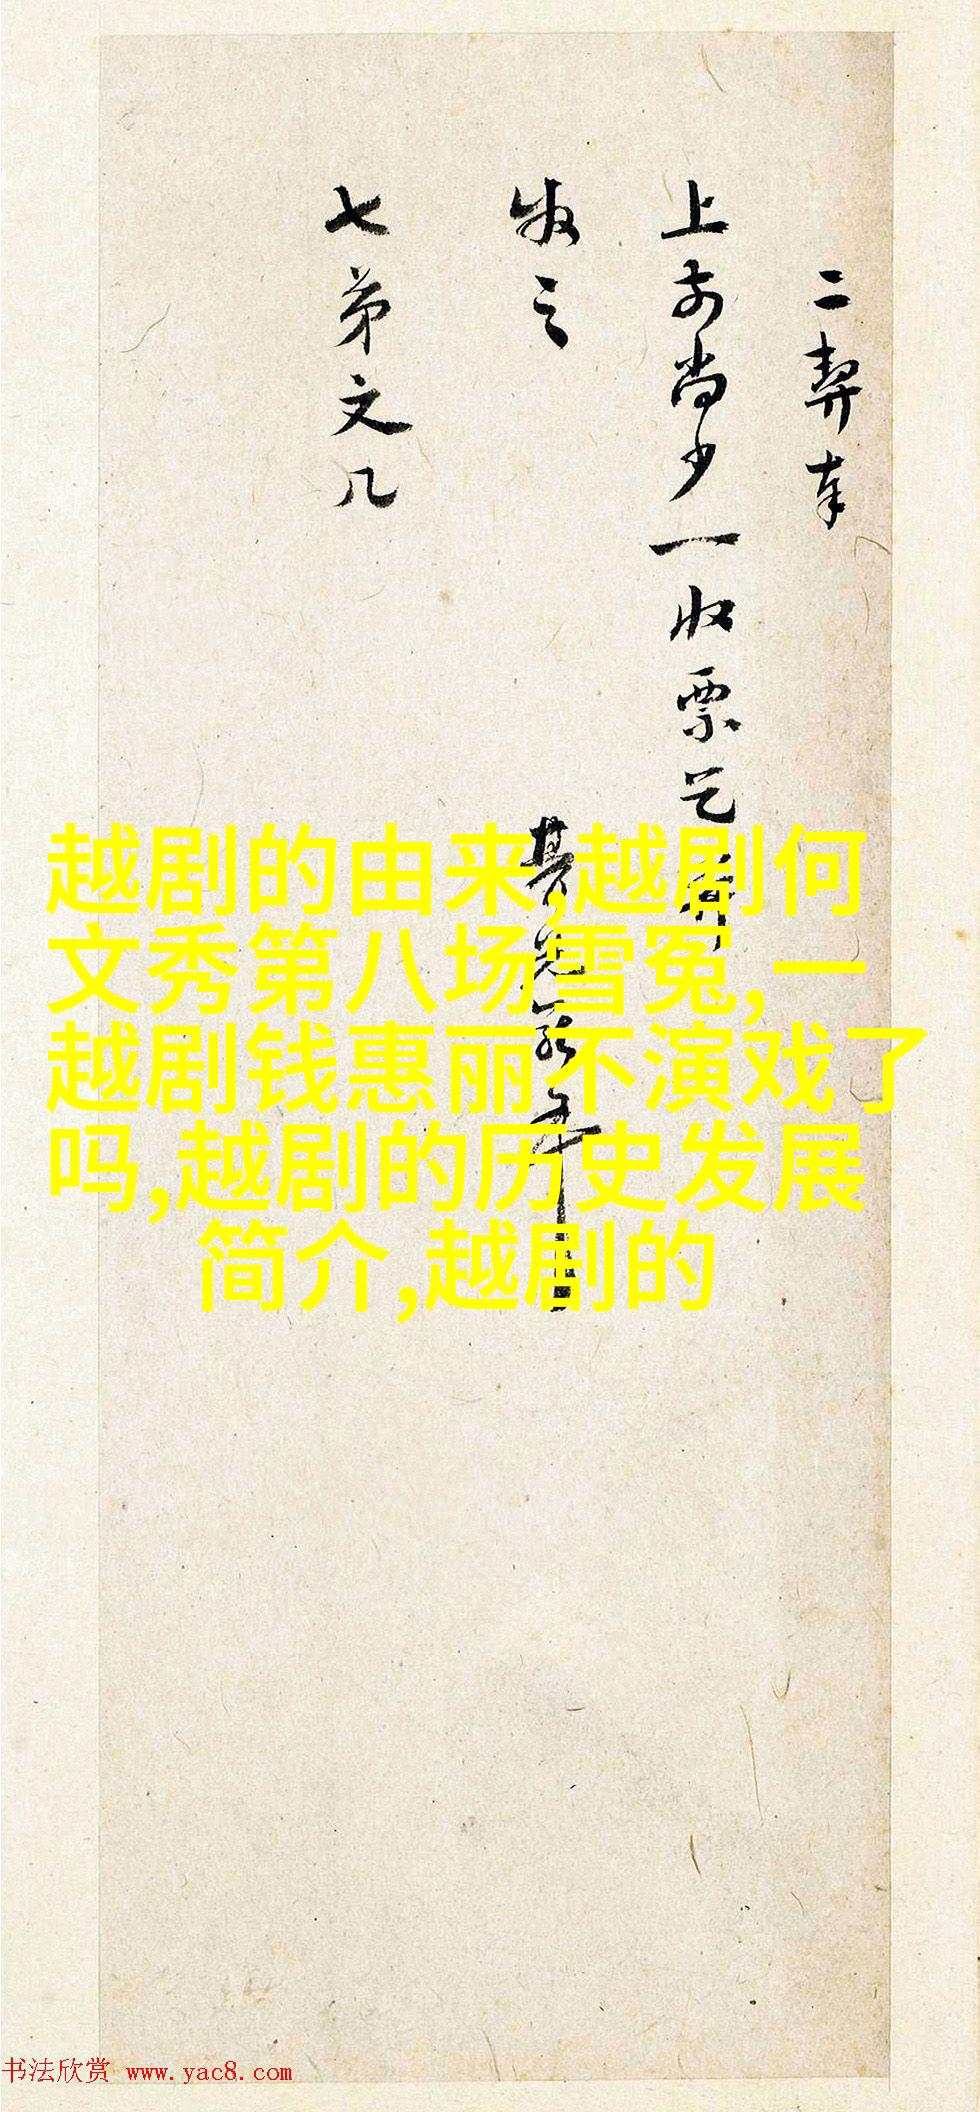 二契奉
上前尚少一收票乞
收之
七弟文几
越剧的由来,越剧何
文秀第八场雪冤,一
越剧钱惠丽不演戏了
吗,越剧的历史发展
简介,越剧的
书法欣赏 www.yac8.com